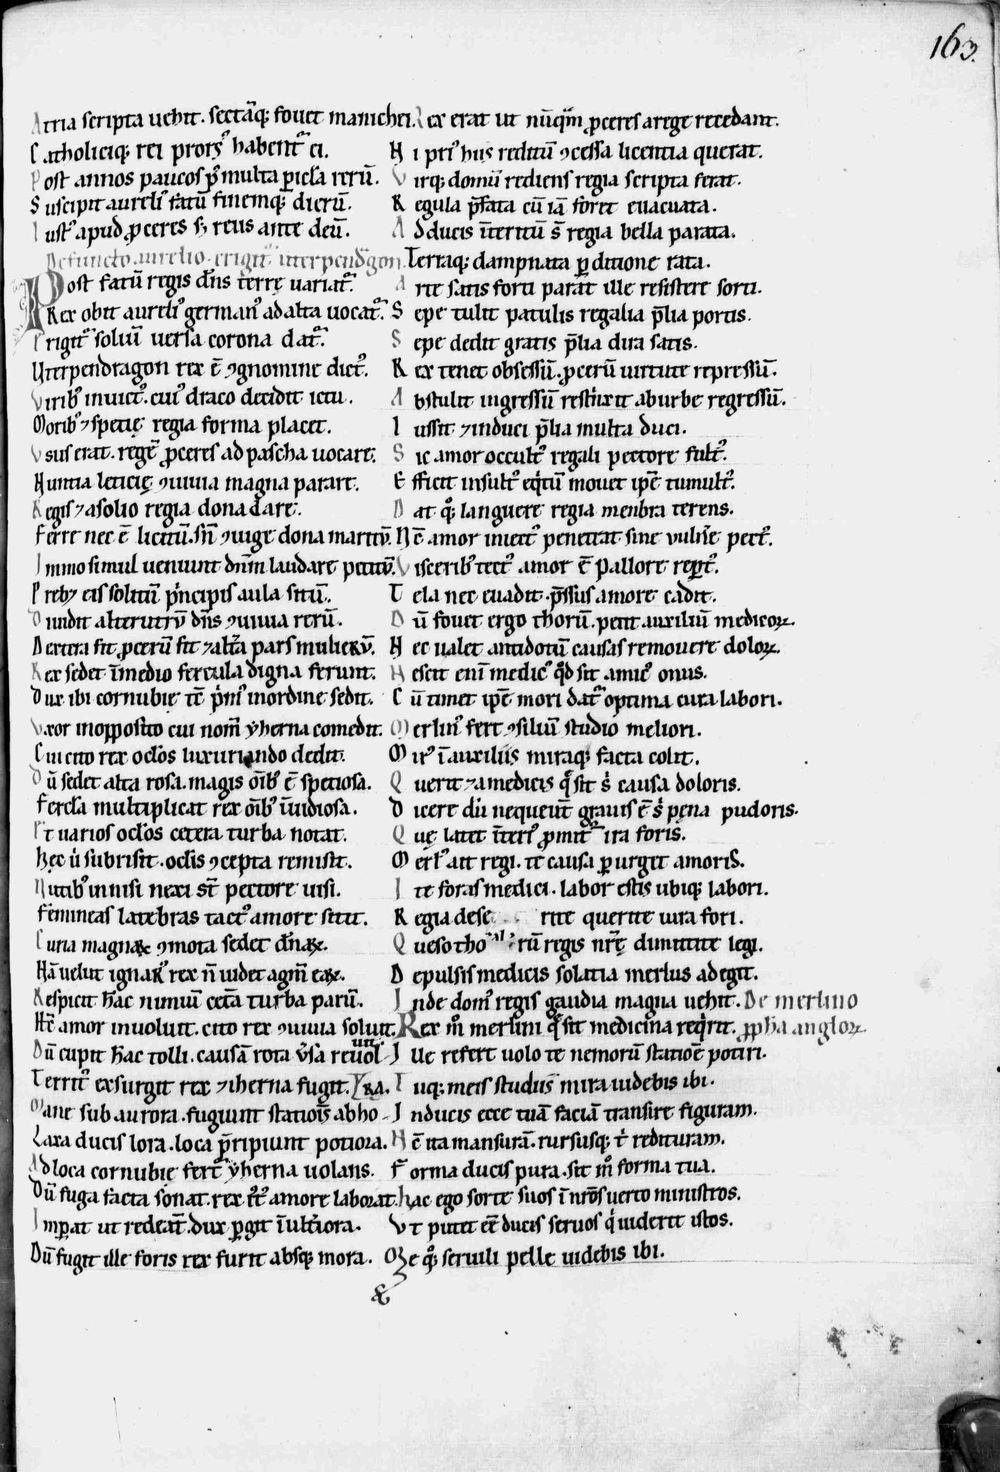 163.
Atria scripta uehit. sectāq; fouet manichei.
Catholiciq; rei prorsꝰ habent᷑ ei.
Post annos paucos pꝰ multa ꝑicła rerū.
Suscipit aureliꝰ fatū finemq; dierū.
Iustꝰ apud ꝓceres sꝫ reus ante deū.
Defuncto aurelio. erigit᷑ uterpendͣgon.
Post fatū regis dn̄s terrę uariat᷑.
Rex obit aureliꝰ germanꝰ ad alta uocat᷑.
Erigit᷑ soliū uersa corona dat᷑.
Uterpendragon rex ē ꝯgnomine dictꝰ.
Viribꝰ inuictꝰ. cuiꝰ draco decidit ictu.
Moribꝰ ⁊ spetię regia forma placet.
Vsus erat. regē ꝓceres ad pascha uocare.
Nuntia leticię ꝯuiuia magna parare.
Regis ⁊ a solio regia dona dare.
Ferre nec ē licitū. sn̄ ꝯiuge dona maritū.
Immo simul ueniunt dn̄m laudare peritū.
Prebꝫ eis solitū pͥncipis aula sitū.
Diuidit alterutrū dn̄s ꝯuiuia rerū.
Dextera fit ꝓcerū fit ⁊ alt̄a pars mulierū.
Rex sedet ī medio fercula digna ferunt.
Dux ibi cornubię tc̄ pͥmꝰ in ordine sedit.
Vxor in opposito cui nom̄ yherna comedit.
Cui cito rex oclos luxuriando dedit.
Dū sedet alta rosa. magis oībꝰ ē spetiosa.
Fercła multiplicat rex oībꝰ īuidiosa.
Et uarios ocłos cetera turba notat.
Hec ū subrisit. oclis ꝯcepta remisit.
Nutibꝰ inuisi nexi st̄ pectore uisi.
Femineas latebras tactꝰ amore sitit.
Curia magnaꝝ ꝯmota sedet dn̄aꝝ.
Nā uelut ignarꝰ rex n̄ uidet agm̄ eaꝝ.
Respicit hāc nimiū cet̄a turba parū.
Hc̄ amor inuoluit. cito rex ꝯuiuia soluit.
Dū cupit hāc tolli. causā rota ūsa reuoluit
Territꝰ exsurgit rex ⁊ iherna fugit.
Mane sub aurora. fugiunt statiōis ab hora.
Laxa ducis lora. loca p̄ripiunt potiora.
Ad loca cornubię fert᷑ yherna uolans.
Dū fuga facta sonat. rex fc̄tꝰ amore laborat.
Imꝑat ut redeat᷑. dux ꝑgit ī ult̄iora.
Dū fugit ille foris rex furit absq; mora.
Rex erat ut nūqͣm ꝓceres a rege recedant.
Ni priꝰ huis reditū ꝯcessa licentia querat.
Virq; domū rediens regia scripta ferat.
Regula p̄fata cū iā foret euacuata.
Ad ducis īteritū s̄ regia bella parata.
Terraq; dampnata ꝑditione rata.
Arte satis forti parat ille resistere sorti.
Sepe tulit patulis regalia p̄lia portis.
Sepe dedit gratis p̄lia dira satis.
Rex tenet obsessū. ꝓcerū uirtute repressū.
Abstulit ingressū restrixit ab urbe regressū.
Iussit ⁊ induci p̄lia multa duci.
Sic amor occultꝰ regali pectore fultꝰ.
Efficit insultꝰ eqͥtū mouet ip̄e tumultꝰ.
Dat qꝫ languere regia menbra terens.
Nē amor iniectꝰ penetrat sine uuln̄e pectꝰ.
Visceribꝰ tectꝰ amor ē pallore reꝑtꝰ.
Tela nec euadit. p̄ssus amore cadit.
Dū fouet ergo thorū. petit auxiliū medicoꝝ.
Nec ualet antidotū causas remouere doloꝝ.
Nescit enī medicꝰ qͥd sit amicꝰ onus.
Cū timet ip̄e mori dat᷑ optima cura labori.
Merlinꝰ fert ꝯsiliū studio meliori.
Mirꝰ ī auxiliis miraq; facta colit.
Querit ⁊ a medicis qͥ sit s̄ causa doloris.
Dicere dū nequeūt grauis ē s̄ pena pudoris.
Quę latet īteriꝰ ꝓmit᷑ ira foris.
Merlꝰ ait regi. te causa ꝑurget amoris.
Ite foras medici. labor estis ubiq; labori.
Regia dese rite querite iura fori.
Queso tho rū regis nr̄ę dimittite legi.
Depulsis medicis solatia merlus adegit.
Inde domꝰ regis gaudia magna uehit. De merlino
Rex m̄ merlini qͥ sit medicina reqͥrit. ꝓpha angloꝝ.
Iue refert uolo te nemorū statiōe potiri.
Tuq; meis studiis mira uidebis ibi.
Inducis ecce tuā faciā transire figuram.
Nē ita mansurā. rursusq; t̄ redituram.
Forma ducis pura. sit m̄ forma tua.
Hac ego sorte suos ī nr̄os uerto ministros.
Vt putet eē ducis seruos qͥ uiderit istos.
Me qꝫ seruili pelle uidebis ibi.
&